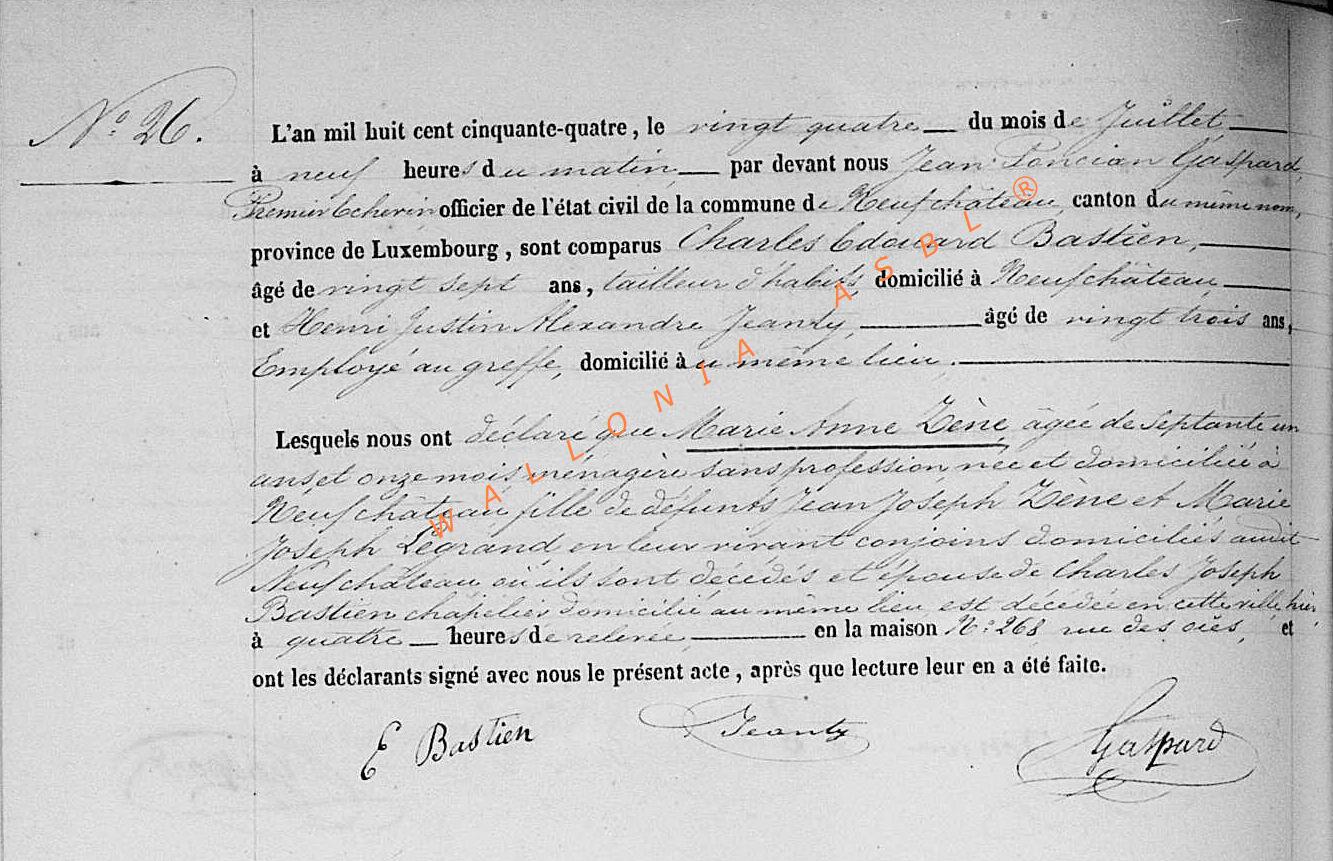 N.° 26.
L'an mil huit cent cinquante-quatre, le vingt quatre du mois de Juillet,
à neuf heures du matin, par devant nous Jean Poncian Gaspard
Premier Echevin officier de l'état civil de la commune de Neufchâteau, canton du même nom,
province de Luxembourg, sont comparus Charles Edouard Bastien,
âgé de vingt sept ans, tailleur d'habits, domicilié à Neufchâteau,
et Henri Justin Alexandre Jeanty, âgé de vingt trois ans,
Employé au greffe, domicilié au même lieu.
Lesquels nous ont déclaré que Marie Anne Zène, âgée de septante un
ans et onze mois ménagère sans profession, née et domiciliée à
Neufchâteau, fille de défunts Jean Joseph Zène et Marie
Joseph Legrand en leur vivant conjoins domiciliés audit
Neufchâteau où ils sont décédés et épouse de Charles Joseph
Bastien chapelier domicilié au même lieu est décédée en cette ville hier,
à quatre heures de relevée, en la maison N.° 268 rue des oies, et
ont les déclarants signé avec nous le présent acte, après que lecture leur en a été faite.
E Bastien Jeanty Gaspard
WALLONIA ASBL ®